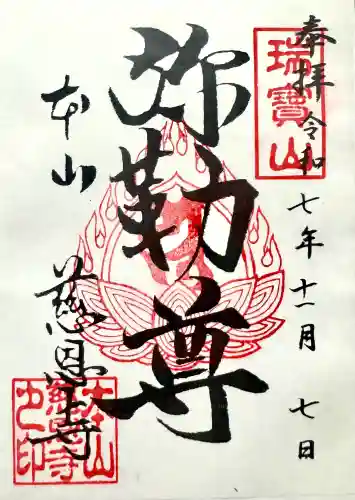 奉拝 令和七年十一月七日
瑞寶山
弥勒尊
本山
慈恩寺